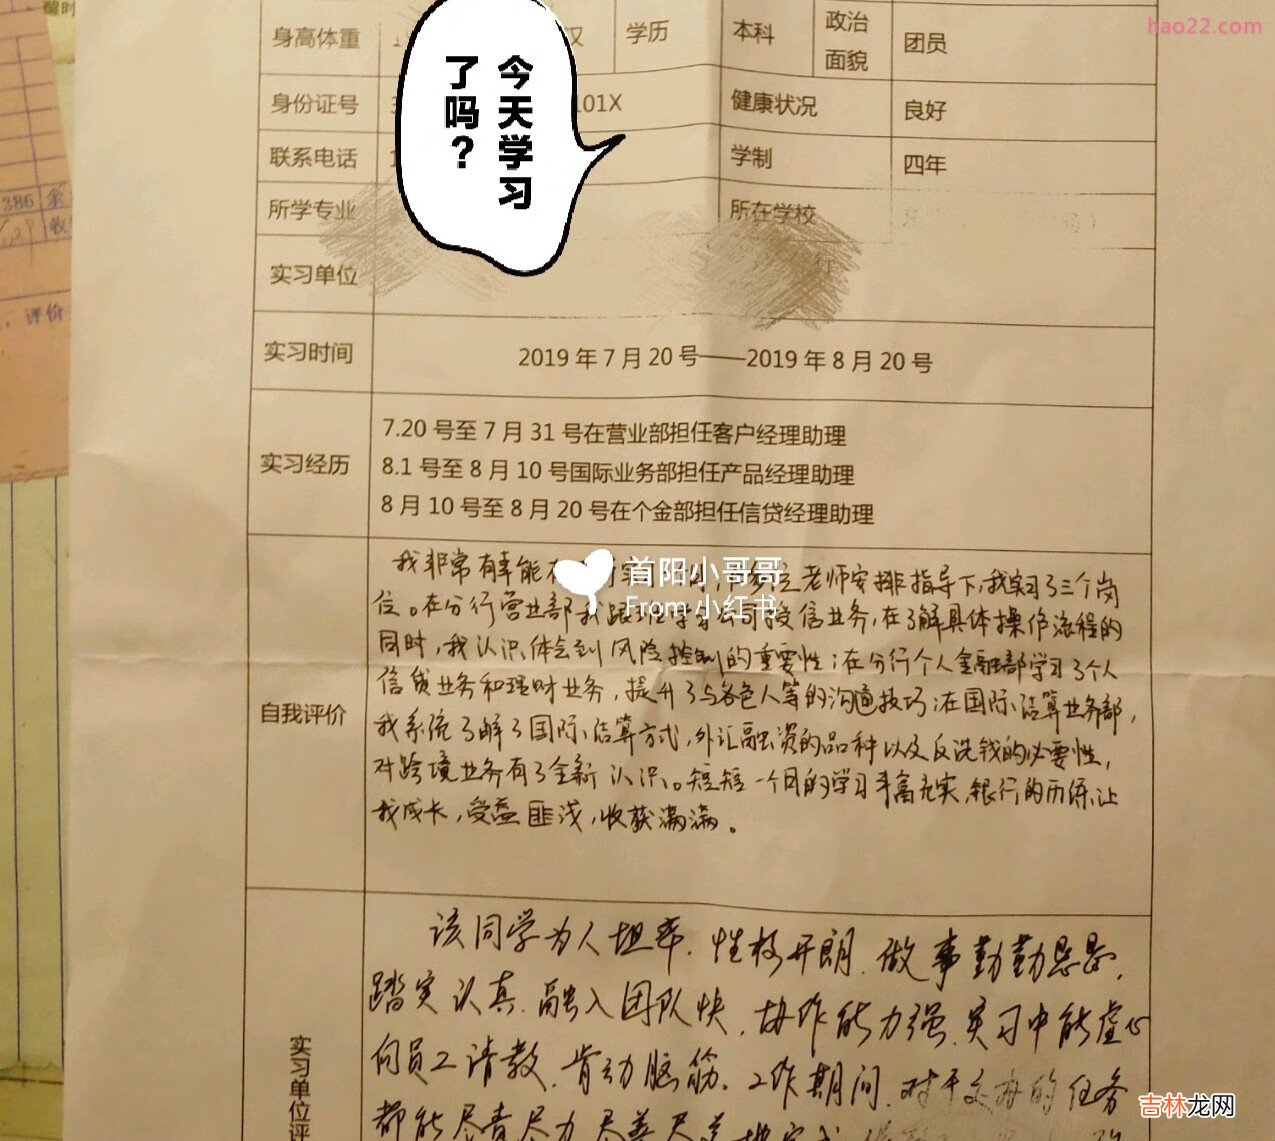 醒时
hao22.com
身高体重
汉
学历
本科
政治
面貌
团员
今天学习
了吗？
身份证号
101X
健康状况
良好
联系电话
学制
四年
386
余
收
评价
所学专业
所在学校
实习单位
实习时间
2019 年 7 月 20 号——2019 年 8 月 20 号
实习经历
7.20 号至 7 月 31 号在营业部担任客户经理助理
8.1 号至 8 月 10 号国际业务部担任产品经理助理
8 月 10 号至 8 月 20 号在个金部担任信贷经理助理
首阳小哥哥
From 小红书
自我评价
我非常有幸能在 老师安排指导下,我实习了三个岗
位。在分行营业部我跟班学习公司授信业务,在了解具体操作流程的
同时,我认识体会到风险控制的重要性;在分行个人金融部学习了个人
信贷业务和理财业务,提升了与各色人等的沟通技巧;在国际结算业务部,
我系统了解了国际结算方式,外汇融资的品种以及反洗钱的必要性,
对跨境业务有了全新认识。短短一个月的学习丰富充实,银行的历练让
我成长,受益匪浅,收获满满。
实习单位评
该同学为人坦率.性格开朗.做事勤勤恳恳.
踏实认真.融入团队快.协作能力强.实习中能虚心
向员工请教.肯动脑筋.工作期间.对于交办的任务
都能尽责尽力尽善尽美地完成
吉林龙网